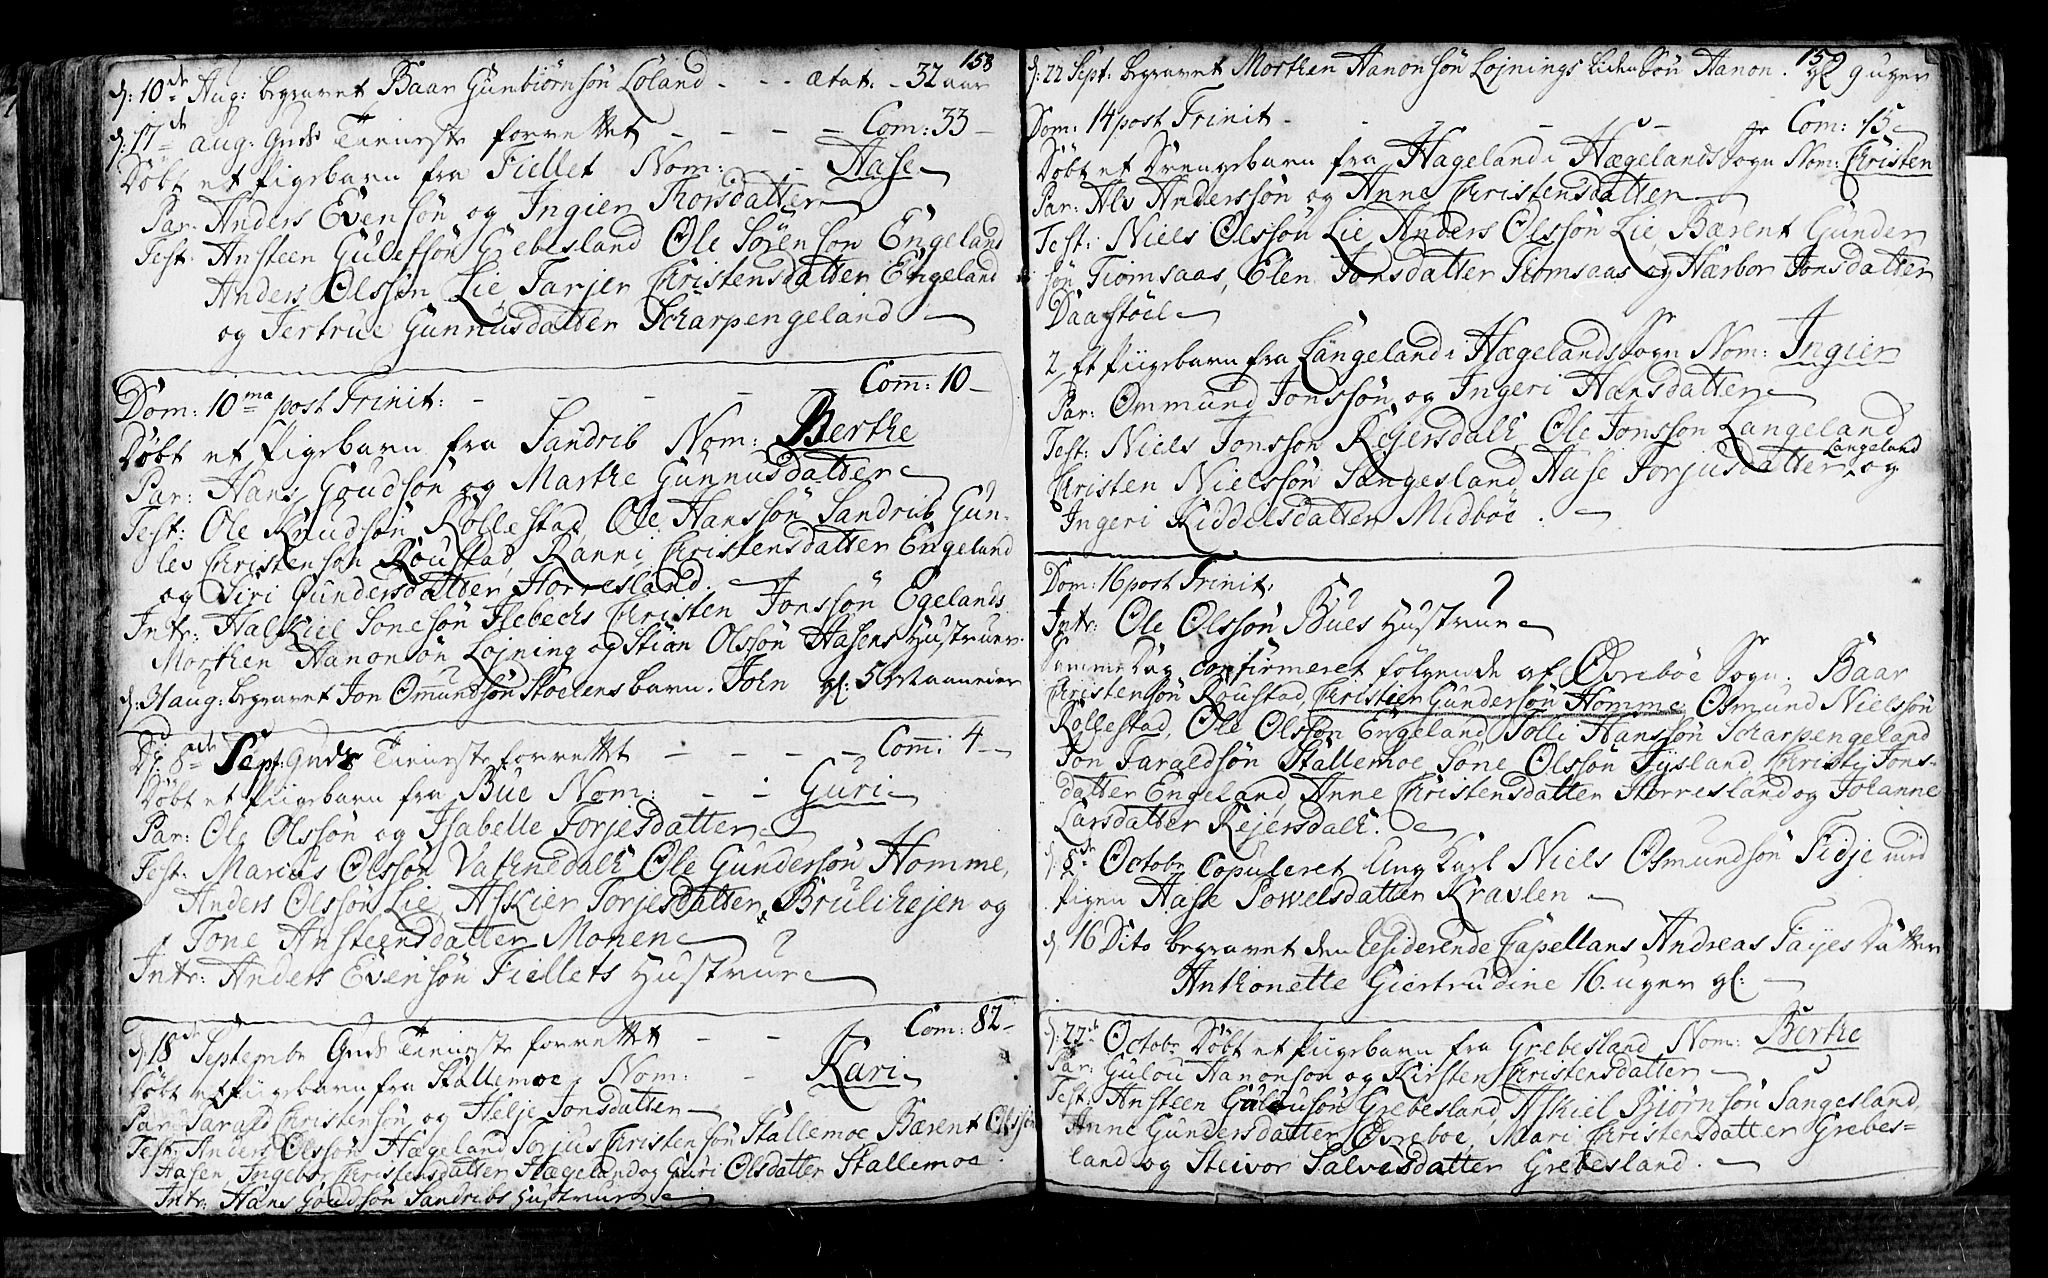 158
d: 10de Aug: begravet Baar Gunbiørnsøn Løland - - ætat. - 32 aar
d: 17de aug: Guds Tieniste forrettet - - - - Com: 33 -
Døbt et Pigebarn fra Fiellet Nom: - - Aase
Par: Anders Evensøn og Ingier Thorsdatter
Test: Ansteen Gulefsøn Grebesland Ole Sørensøn Engeland
Anders Olssøn Lie, Tarjer Christensdatter Engeland
og Jertrue Gunnusdatter Scharpengeland
Dom: 10ma post Trinit: - - - - - Com: 10 -
Døbt et Pigebarn fra Sandrib Nom: Berthe
Par: Hans Goudsøn og Marthe Gunnusdatter
Test: Ole Knudsøn Røllestad Ole Hanssøn Sandrib Gun-
lev Christensøn Roustad, Ranni Christensdatter Engeland
og Siri Gundersdatter Horresland.
Intr: Halkiel Sonesøn Flebechs Christen Jonssøn Egelands
Morthen Hanonsøn Lojning og Stian Olssøn Aasens Hustruer.
d: 31 aug: begravet Jon Omundsøn Stoelens barn. John gl: 5 Maaneder
D: 8de Sept: Guds Tieniste forrettet - - - - Com: 4 -
Døbt et Piigebarn fra Bue Nom: - - Guri
Par: Ole Olssøn og Isabelle Torjesdatter
Test: Marius Olssøn Vathnedalh Ole Gundersøn Homme,
Anders Olssøn Lie, Askier Torjesdatter Brulihejen og
Tone Ansteensdatter Monen
Intr: Anders Evensøn Fiellets Hustrue
d: 18de Septembr Guds Tieniste forrettet - - Com: 82 -
Døbt et Piigebarn fra Stallemoe Nom: - Kari
Par: Tarald Christensøn og Helje Jonsdatter
Test: Anders Olssøn Hægeland Torjus Christensøn Stallemoe Bærent Olssøn
Aasen, Ingebor Christensdatter Hægeland og Guri Olsdatter Stallemoe.
Intr: Hans Goudsøn Sandribs Hustrue
159
d: 22 Sept: begravet Morthen Hanonsøn Lojnings liden Søn Hanon. gl 9 uger
Dom: 14 post Trinit - - - - - Com: 15
Døbt et Drengebarn fra Hageland i Hægelands Sogn Nom: Christen
Par: Alv Anderssøn og Anne Christensdatter
Test: Niels Olssøn Lie Anders Olssøn Lie, Bærent Gunder
søn Tiomsaas, Elen Jonsdatter Tiomsaas og Hærbor Jonsdatter
Daastøel
2/ Et Piigebarn fra Langeland i Hægelands Sogn Nom: Ingier
Par: Ommund Jonssøn og Ingeri Hansdatter
Test: Niels Jonssøn Rejersdalh, Ole Jonssøn Langeland
Christen Nielssøn Sangesland, Aase Torjusdatter Langeland og
Ingeri Kiddelsdatter Midbøe.
Dom: 16 post Trinit:
Intr: Ole Olssøn Bues Hustrue
Samme Dag confirmeret følgende af Øvrebøe Sogn. Baar
Christensøn Roustad, Christen Gundersøn Homme Osmund Nielssøn
Røllestad, Ole Olssøn Engeland Tolli Hanssøn Scharpengeland
Jon Taraldsøn Stallemoe Sone Olssøn Tiisland, Christi Jons-
datter Engeland, Anne Christensdatter Horresland og Johanne
Larsdatter Rejersdalh.
d: 5de Octobr copuleret Ung Karl Niels Osmundsøn Fidje med
Pigen Aase Powelsdatter Kravlen
d: 16 Dito begravet den residerende Capellans Andreas Fayes Datter
Anthonette Giertrudine 16. uger gl:
d: 22de Octobr Døbt et Piigebarn fra Grebesland Nom: Berthe
Par: Gulou Hanonsøn og Kirsten Christensdatter
Test: Ansteen Gulousøn Grebesland, Askiel Biørnsøn Sangesland,
Anne Gundersdatter Øvreboe, Mari Christensdatter Grebes-
land og Steivor Salvesdatter Grebesland.